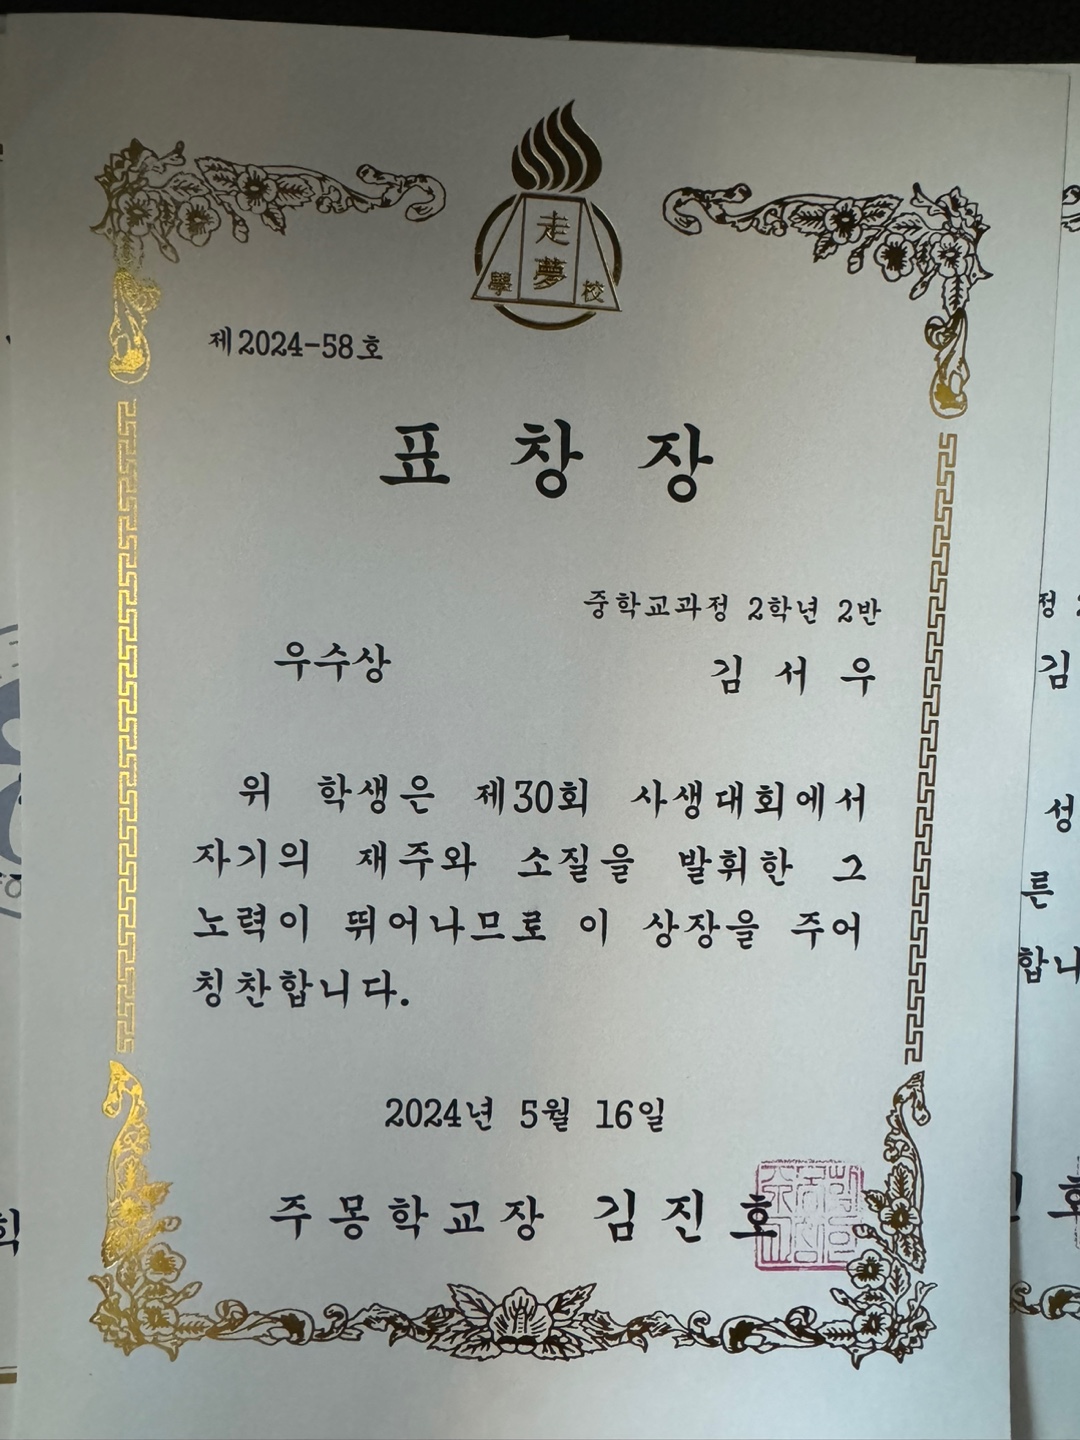 走
夢
學 校
제2024-58호
표 창 장
중학교과정 2학년 2반
우수상 김 서 우
위 학생은 제30회 사생대회에서
자기의 재주와 소질을 발휘한 그
노력이 뛰어나므로 이 상장을 주어
칭찬합니다.
2024년 5월 16일
주몽학교장 김진호
정
김
성
른
합니
회